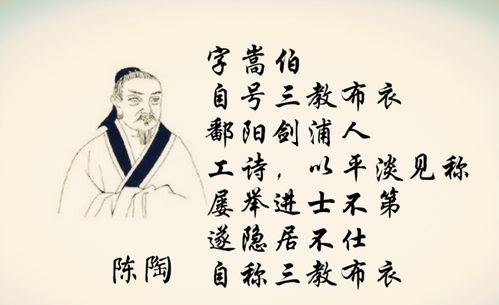 字嵩伯
自号三教布衣
鄱阳剑浦人
工诗，以平淡见称
屡举进士不第
遂隐居不仕
自称三教布衣
陈陶